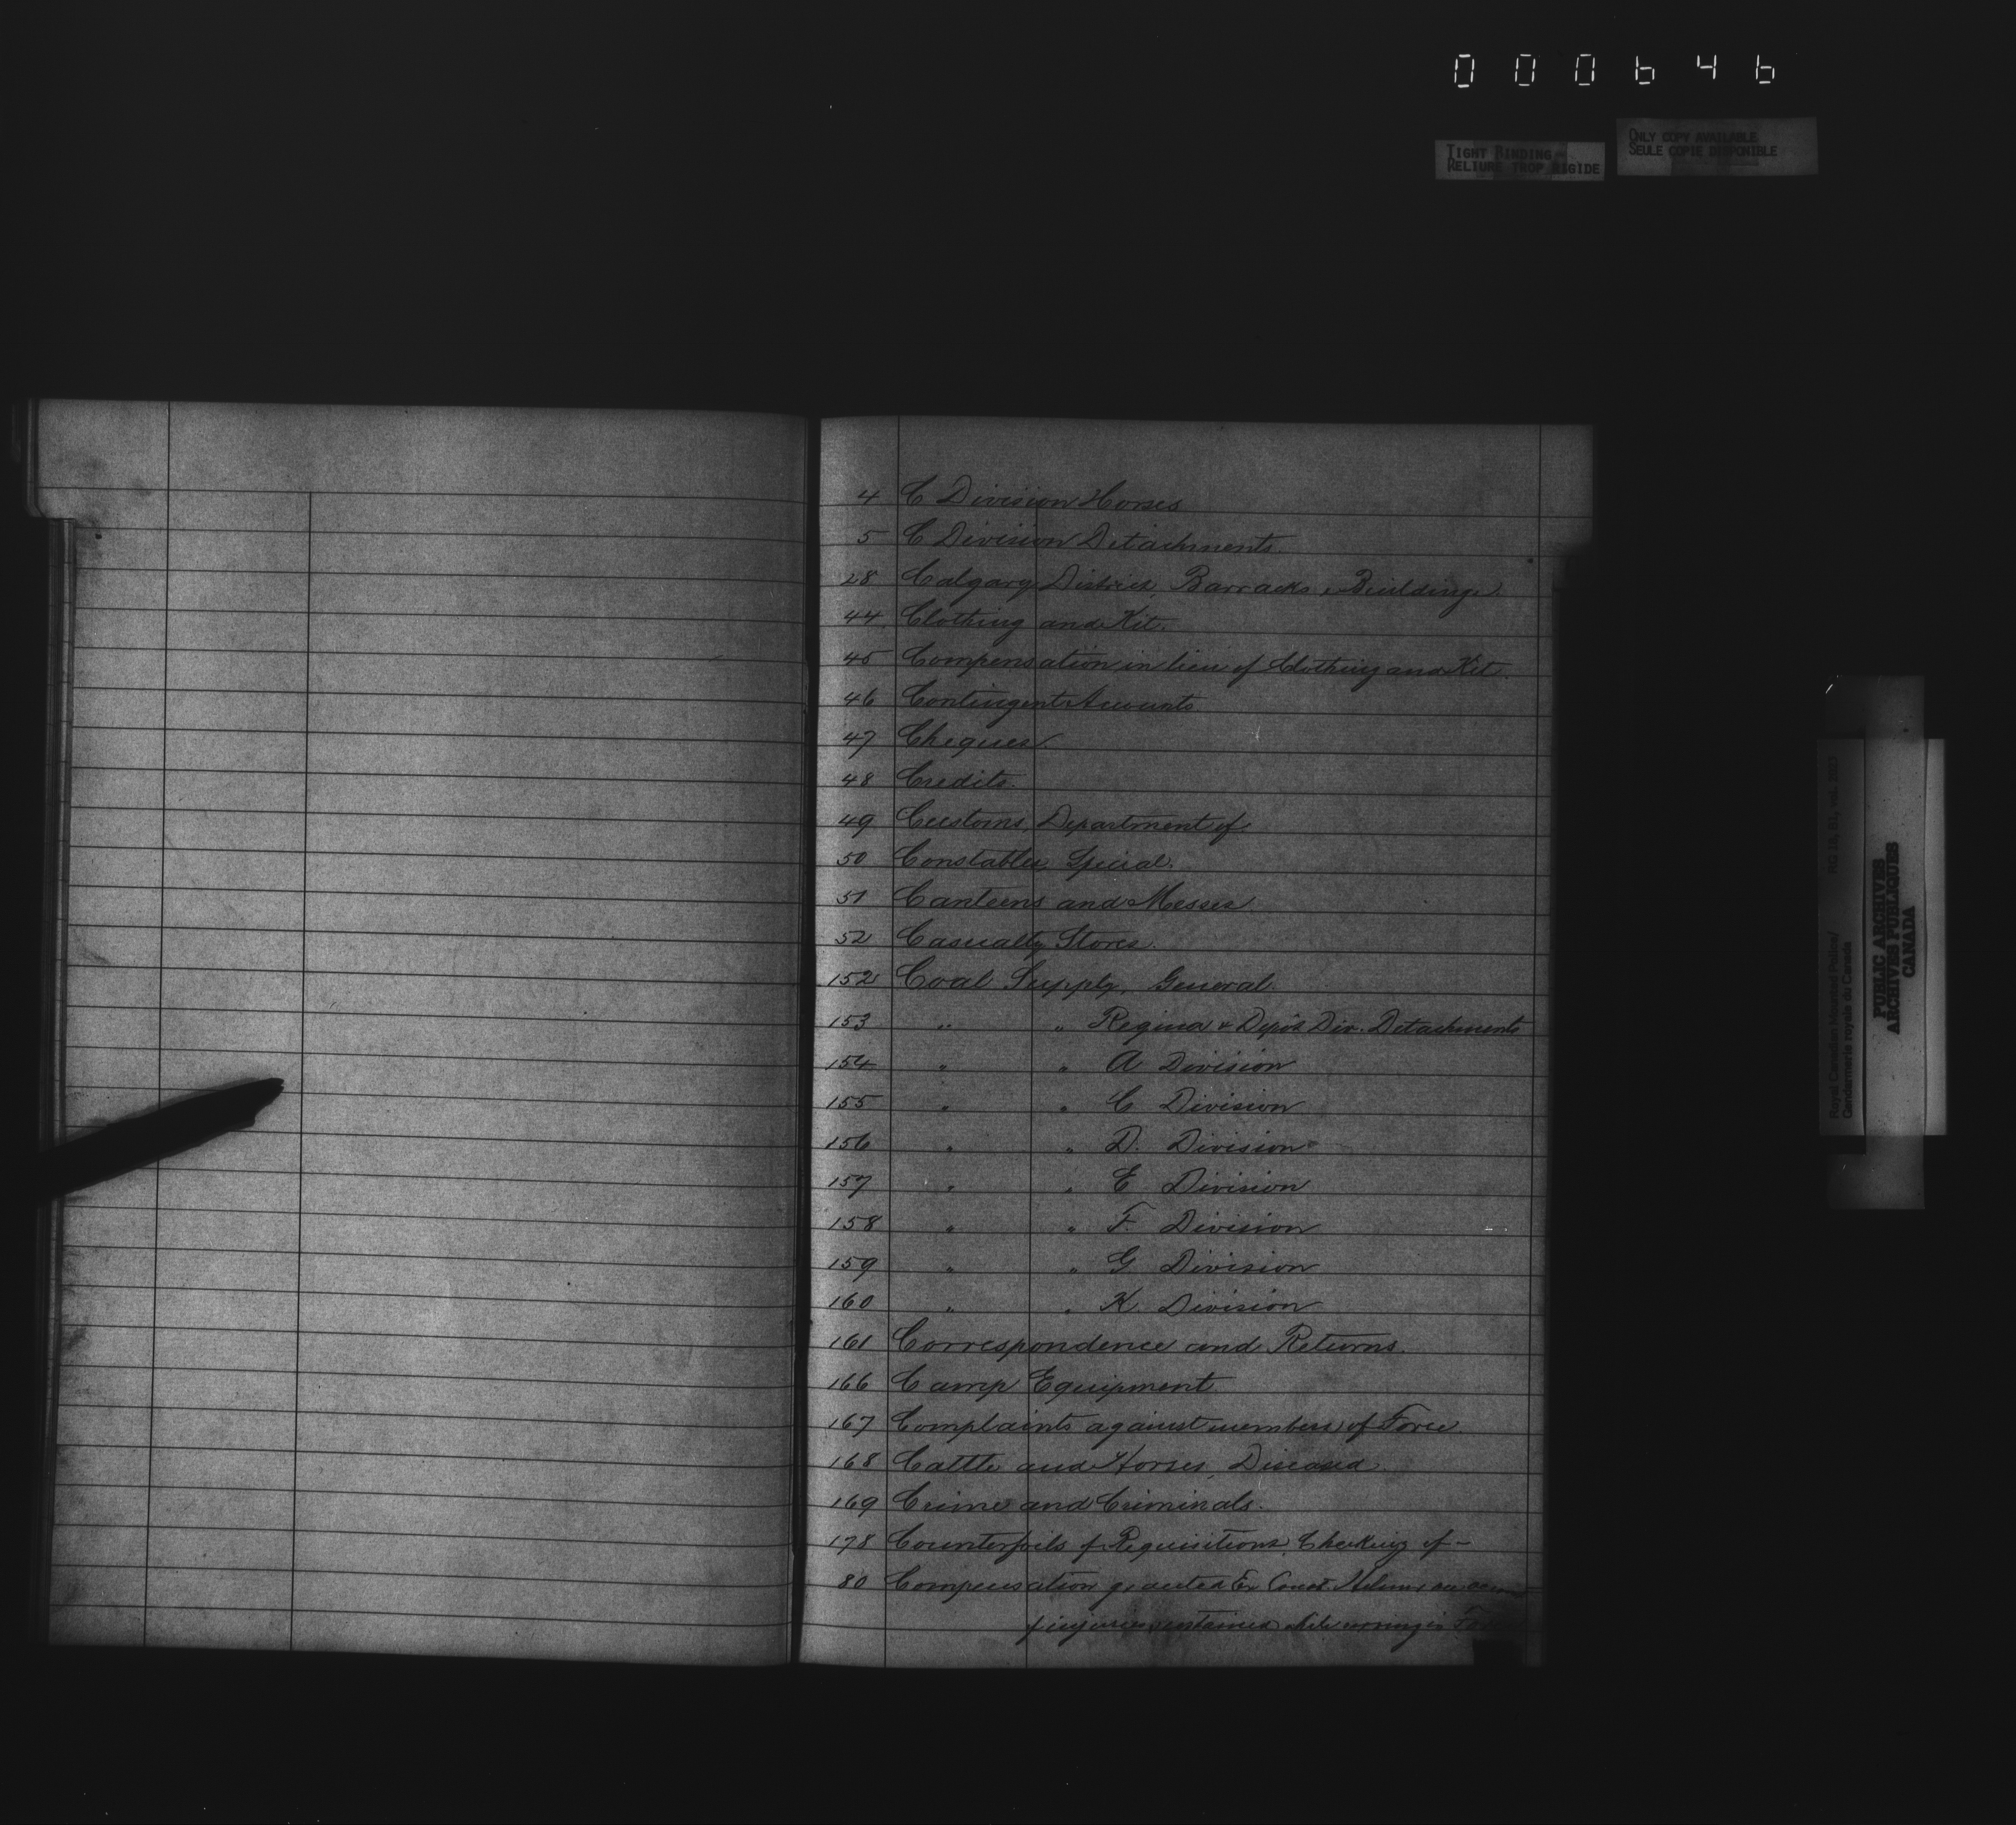 000646
TIGHT BINDING
RELIURE TROP RIGIDE
ONLY COPY AVAILABLE
SEULE COPIE DISPONIBLE
4 C Division Horses
5 C Division Detachments
28 Calgary District, Barracks, Buildings
44 Clothing and Kit.
45 Compensation in lieu of Clothing and Kit.
46 Contingent Accounts
47 Cheques
48 Credits.
49 Customs, Department of
50 Constables, Special.
51 Canteens and Messes.
52 Casualty Stores.
152 Coal Supply, General.
153 " " Regina & Depôt Div. Detachments
154 " " A Division
155 " " C Division
156 " " D. Division
157 " " E Division
158 " " F. Division
159 " " G Division
160 " " K. Division
161 Correspondence and Returns.
166 Camp Equipment
167 Complaints against members of Force.
168 Cattle and Horses, Diseased.
169 Crime and Criminals.
178 Counterfoils of Requisitions, Checking of -
80 Compensation granted Ex Const.
injuries sustained while serving in
Royal Canadian Mounted Police/
Gendarmerie royale du Canada
RG 18, B1, vol. 
PUBLIC ARCHIVES
ARCHIVES PUBLIQUES
CANADA